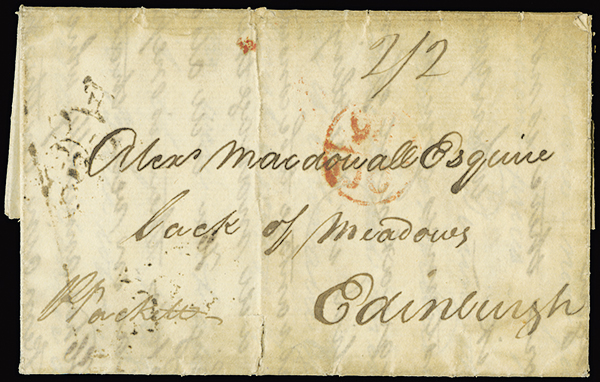 2/2
Alexr Macdowall Esquire
back of Meadows
Edinburgh
P Packett